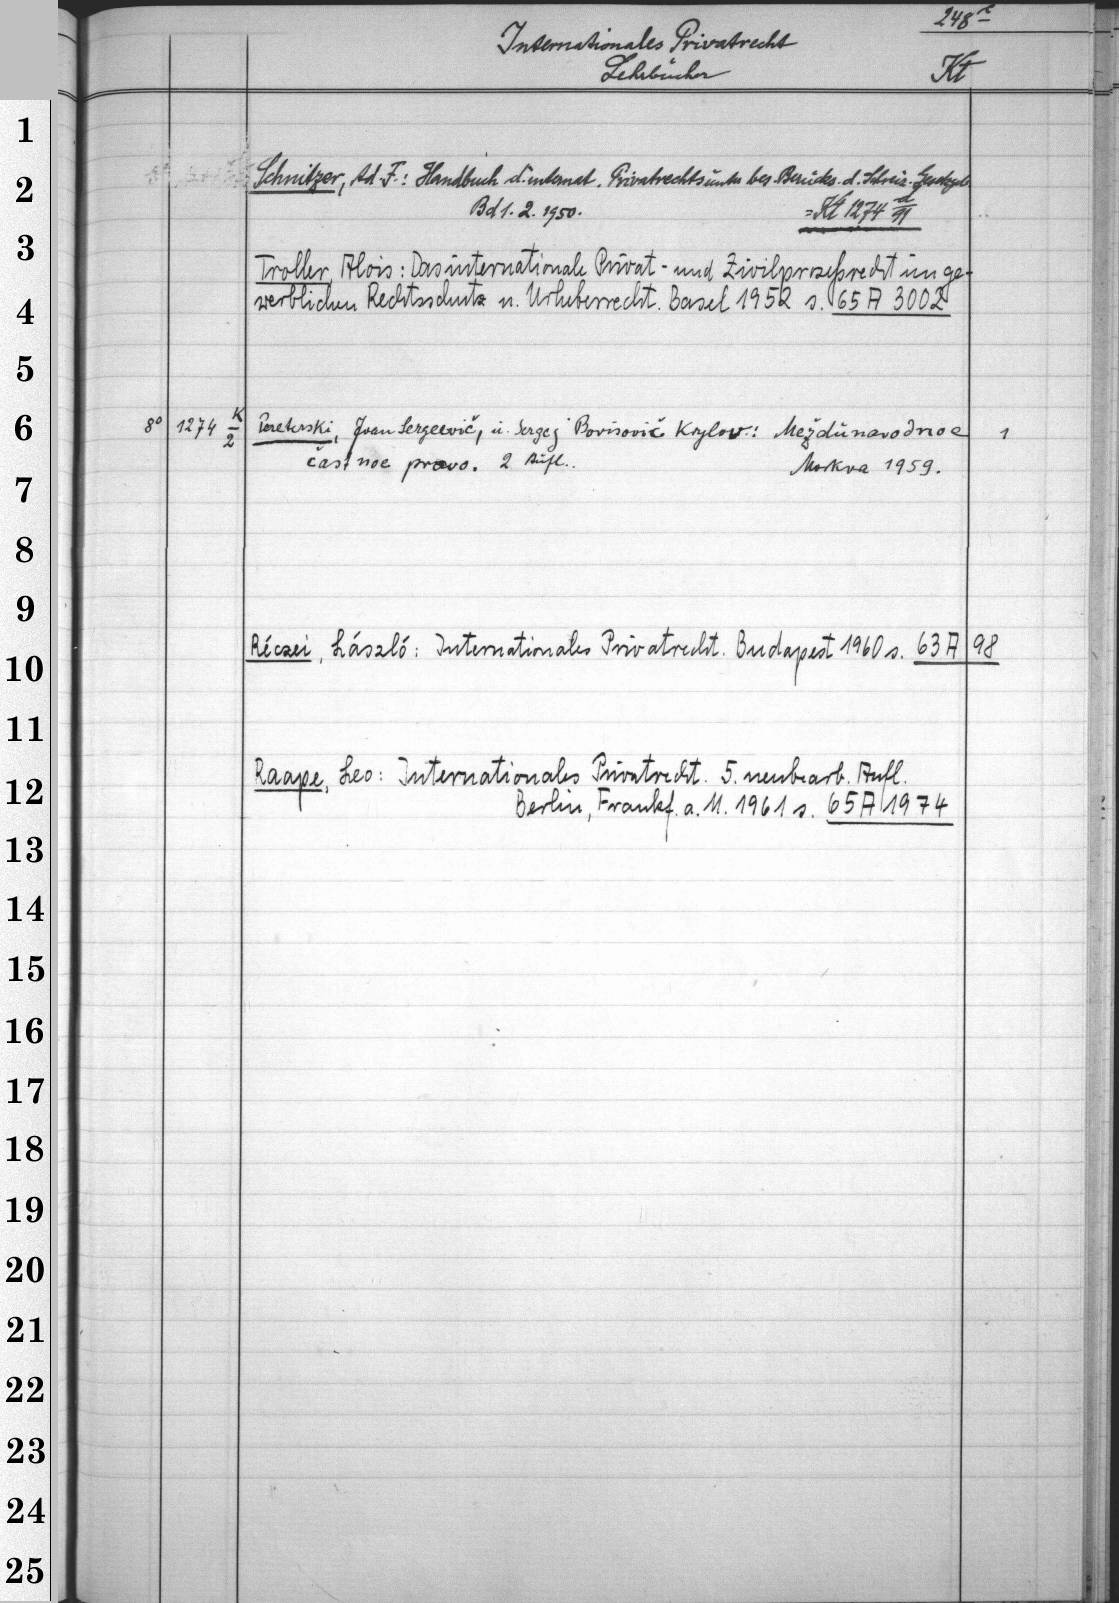 248 r
Internationales Privatrecht
Lehrbücher
Kt
Schnitzer, Ad. F.: Handbuch d. internat. Privatrechts unter bes. Berücks. d. Schweiz. Gesetzgeb.
Bd 1. 2. 1950. = Kt 1274 d/11
Troller, Alois: Das internationale Privat- und Zivilprozeßrecht im ge-
werblichen Rechtsschutz u. Urheberrecht. Basel 1952 s. 65 A 3002
8° 1274 K/2 Pereterski, Ivan Sergeevič, u. Sergej Borisovič Krylov: Meždunarodnoe 1
častnoe pravo. 2 Aufl.. Moskva 1959.
Réczei, László: Internationales Privatrecht. Budapest 1960 s. 63 A 98
Raape, Leo: Internationales Privatrecht. 5. neubearb. Aufl.
Berlin, Frankf. a. M. 1961 s. 65 A 1974
1
2
3
4
5
6
7
8
9
10
11
12
13
14
15
16
17
18
19
20
21
22
23
24
25